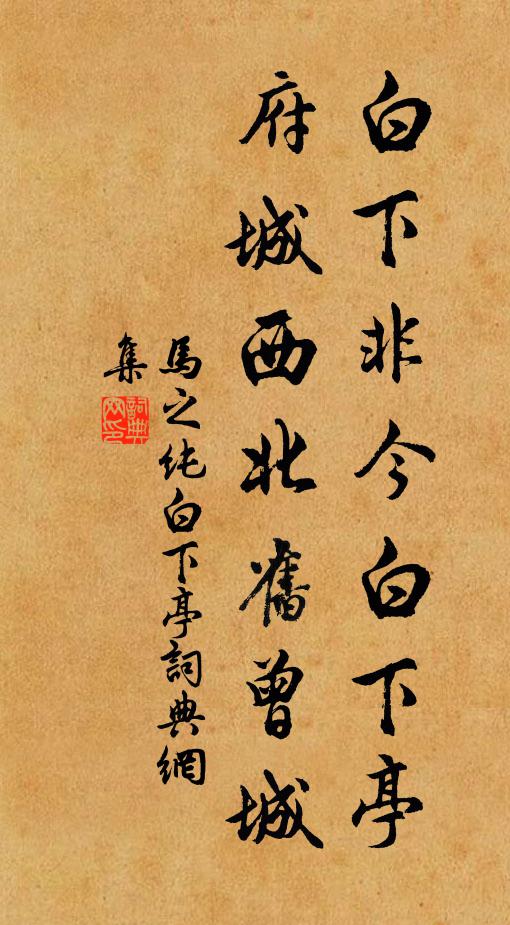 白下非今白下亭
府城西北舊曾城
馬之純白下亭詞典網
集
詞典
网印